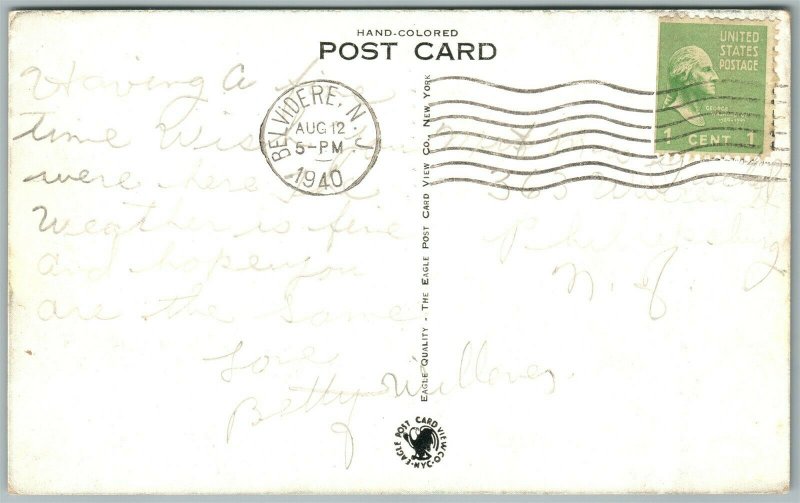 HAND-COLORED
POST CARD
BELVIDERE, N.J.
AUG 12
5-PM
1940
UNITED
STATES
POSTAGE
GEORGE
1 CENT 1
Having a fine
time Wish you
were here The
Weather is fine
and hope you
are the same
Love
Betty
365
Phillipsburg
N. J.
EAGLE QUALITY - THE EAGLE POST CARD VIEW CO., NEW YORK
EAGLE POST CARD VIEW CO. N.Y.C.